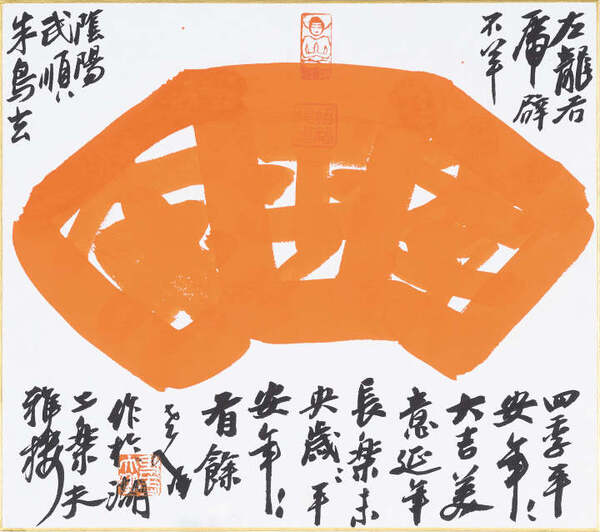 左龍右
虎辟
不羊
朱鳥玄
武順〻
陰陽
四季平
安年〻
大吉美
意延年
長樂未
央歲〻平
安年〻
有餘
作於湖
上
雅樓